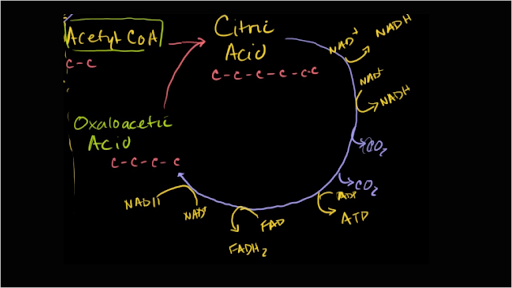 Acetyl CoA
C-C
Citric
Acid
C-C-C-C-C-C
NAD+
NADH
NAD+
NADH
CO2
CO2
ADP
ATP
FAD
FADH2
NAD+
NADH
Oxaloacetic
Acid
C-C-C-C